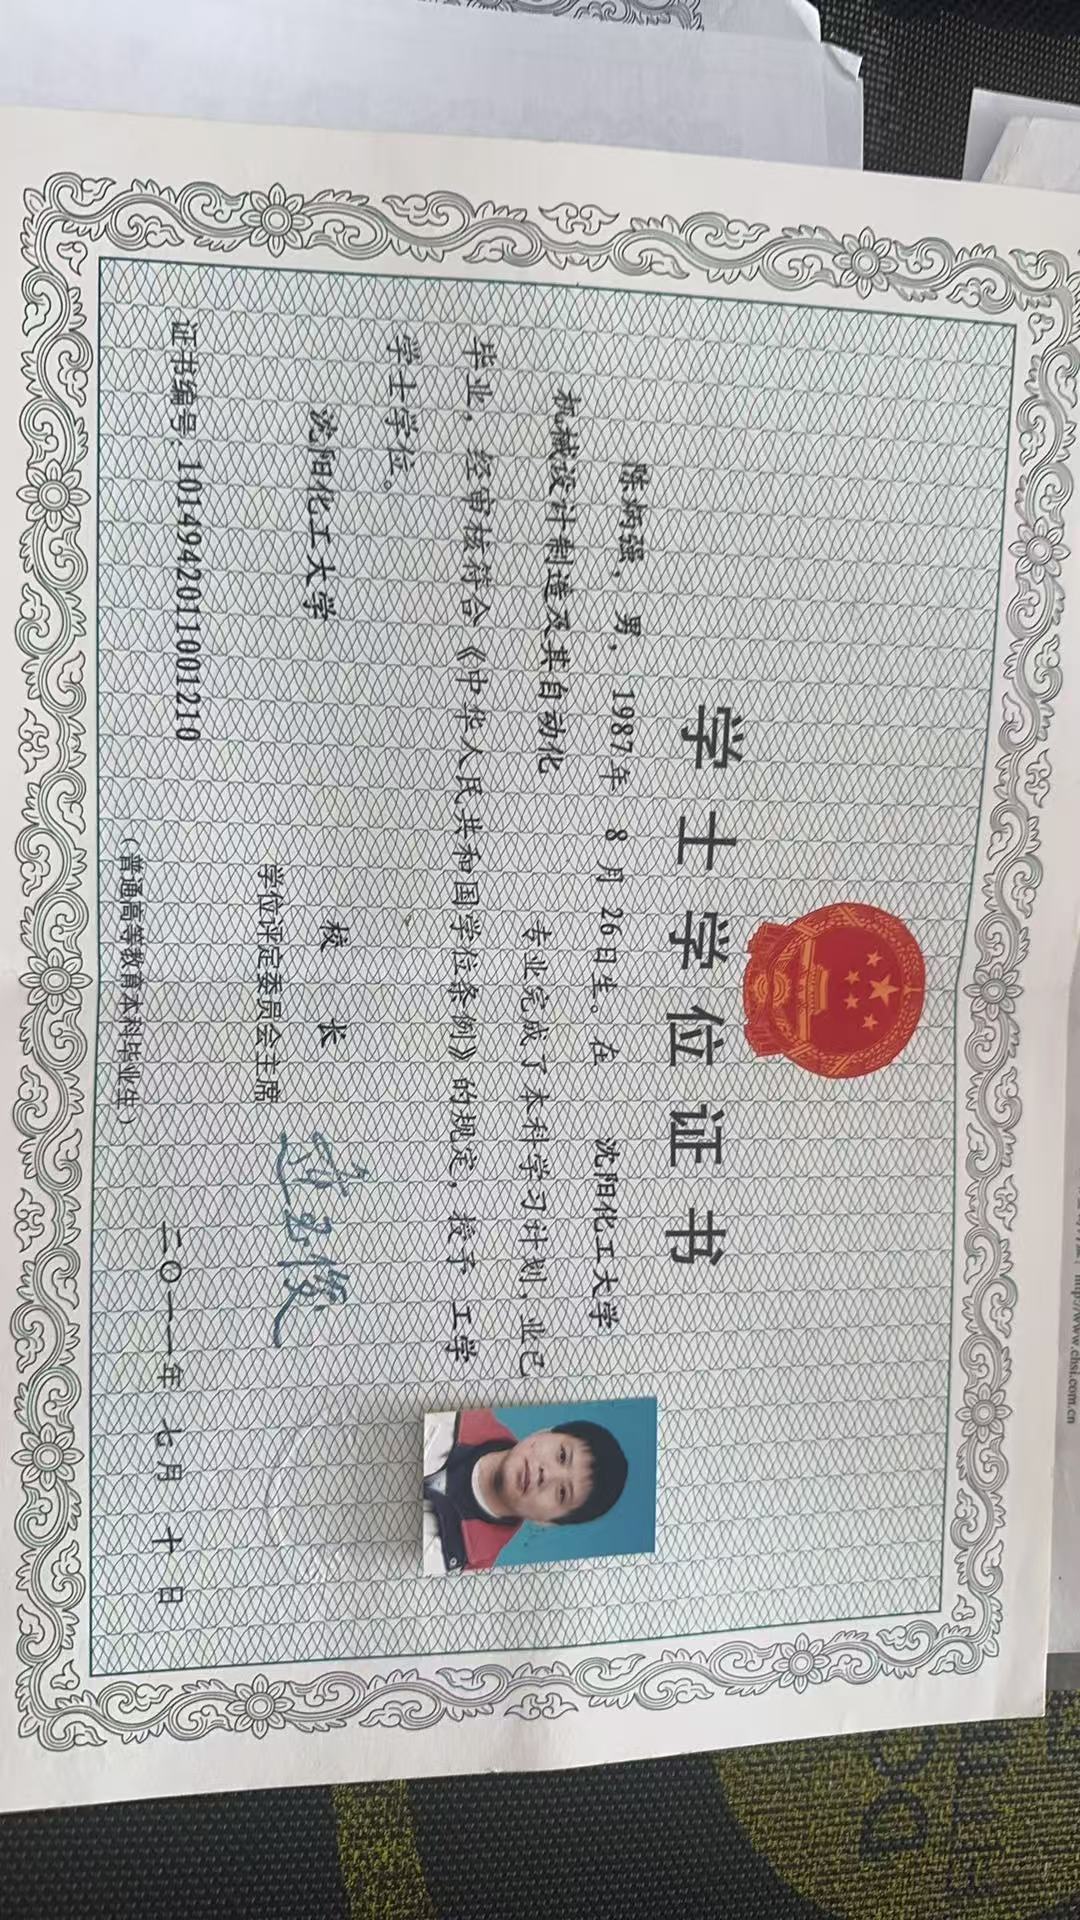 学士学位证书
陈炳强，男，1987年 8月26日生。在 沈阳化工大学
机械设计制造及其自动化 专业完成了本科学习计划，业已
毕业，经审核符合《中华人民共和国学位条例》的规定，授予 工学
学士学位。
沈阳化工大学 校 长
学位评定委员会主席
证书编号:1014942011001210
二〇一一年 七月 十日
（普通高等教育本科毕业生）
http://www.chsi.com.cn